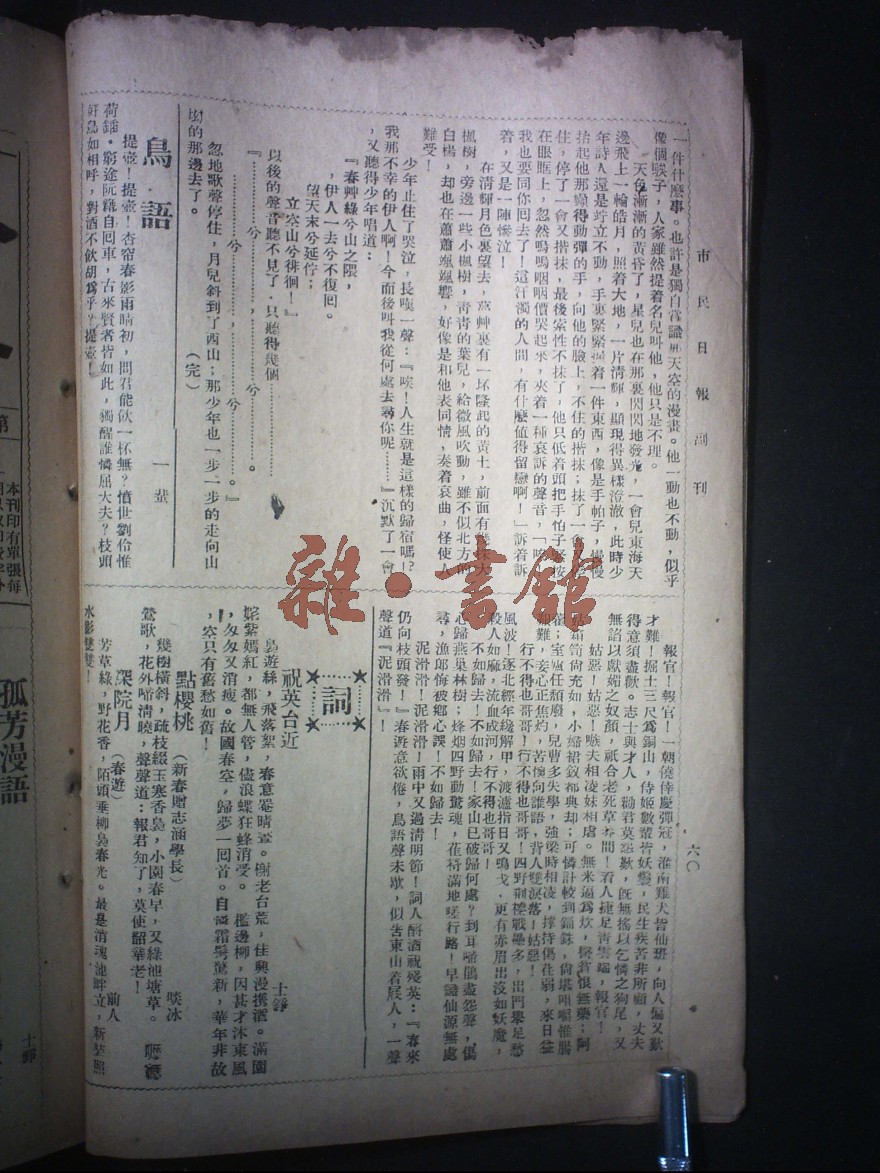 市民日報副刊
六〇
一件什麼事。也許是獨自賞識那天空的漫畫。他一動也不動,似乎
像個騃子,人家雖然提着名兒叫他,他只是不理。
天色漸漸的黃昏了,星兒也在那裏閃閃地發光,一會兒東海天
邊飛上一輪皓月,照着大地,一片清輝,顯現得異樣澄澈,此時少
年詩人還是竚立不動,手裏緊緊握着一件東西,像是手帕子,慢慢
抬起他那懶得動彈的手,向他的臉上,不住的揩抹;抹了一會
住,停了一會又揩抹,最後索性不抹了,他只低着頭把手怕子緊按
在眼眶上,忽然嗚嗚咽咽價哭起來,夾着一種哀訴的聲音,「唉
我也要同你回去了!這汗濁的人間,有什麼值得留戀啊!」訴着訴
着,又是一陣慘泣!
在清輝月色裏望去,叢艸裏有一坏隆起的黃土,前面有
楓樹,旁邊一些小楓樹,青青的葉兒,給微風吹動,雖不似北方的
白楊,却也在蕭蕭颯颯響,好像是和他表同情,奏着哀曲,怪使人
難受!
少年止住了哭泣,長嘆一聲:『唉!人生就是這樣的歸宿嗎?
我那不幸的伊人啊!今而後叫我從何處去尋你呢……』沉默了一會
,又聽得少年唱道:
『春艸綠兮山之隈,
,伊人一去兮不復回。
望天末兮延佇;
立空山兮徘徊!』
以後的聲音聽不見了,只聽得幾個……
『……兮……,……兮……。
……兮……,……兮……。』
忽地歌聲停住,月兒斜到了西山;那少年也一步一步的走向山
坳的那邊去了。
(完)
鳥語
一蜚
提壺!提壺!杏帘春影雨晴初,問君能飲一杯無?憤世劉伶惟
荷鍤,窮途阮藉自回車,古來賢者皆如此,獨醒誰憐屈大夫?枝頭
好鳥如相呼,對酒不飲胡爲乎?提壺!
報官!報官!一朝僥倖慶彈冠,淮南雞犬皆仙班,向人偏又歎
才難!掘土三尺爲銅山,侍姬數輩皆妖鬟,民生疾苦非所顧,丈夫
得意須盡歡。志士與才人,勸君莫悲歎,旣無搖以乞憐之狗尾,又
無諂以獻媚之奴顏,祇合老死草莽間!看人捷足青雲端,報官!
姑惡!姑惡!嗾夫相凌妹相虐。無米逼爲炊,醫許恨無藥;阿
姑箱笥尙充如,小嬸裙釵都典却;可憐計較到錙銖,尙堪咀嚼惟腸
;室廬任頹廢,兒曹多失學,強梁時相凌,撐持傷荏弱,來日益
艱難,妾心正焦灼,苦懷向誰語,背人雙淚落!姑惡!
行不得也哥哥!行不得也哥哥!四野荆榛戰壘多,出門舉足愁
風波!逐北經年纔解甲,渡瀘指日又鳴戈,更有赤眉出沒如妖魔,
殺人如麻,流血成河,行不得也哥哥!
不如歸去!不如歸去!家山已破歸何處?到耳啼鵑盡怨聲,傷
心歸燕巢林樹;烽烟四野動驚魂,萑苻滿地嗟行路!早識仙源無處
尋,漁郎悔被鄉心誤!不如歸去!
泥滑滑!泥滑滑!雨中又過清明節!詞人酹酒祝殘英:『春來
仍向枝頭發!』春遊意欲倦,鳥語聲未歇,似告東山着屐人,一聲
聲道『泥滑滑』!
詞
祝英台近
士錚
裊遊絲,飛落絮,春意罨晴畫。謝老台荒,佳興漫携酒。滿園
姹紫嫣紅,都無人管,儘浪蝶狂蜂消受。 檻邊柳,因甚才沐東風
,匆匆又消瘦。故國春空,歸夢一回首。自憐霜鬢驚新,華年非故
,空只有舊愁如舊!
點櫻桃
(新春贈志涵學長)
啖冰
幾樹橫斜,疏枝綴玉寒香裊,小園春早,又綠池塘草。
鶯歌,花外啼淸曉,聲聲道:報君知了,莫使韶華老!
深院月
(春遊)
前人
芳草綠,野花香,陌頭垂柳裊春光。最是消魂池畔立,新粧照
水影雙雙!
孤芳漫語
士錚
第
本刊印有單張每